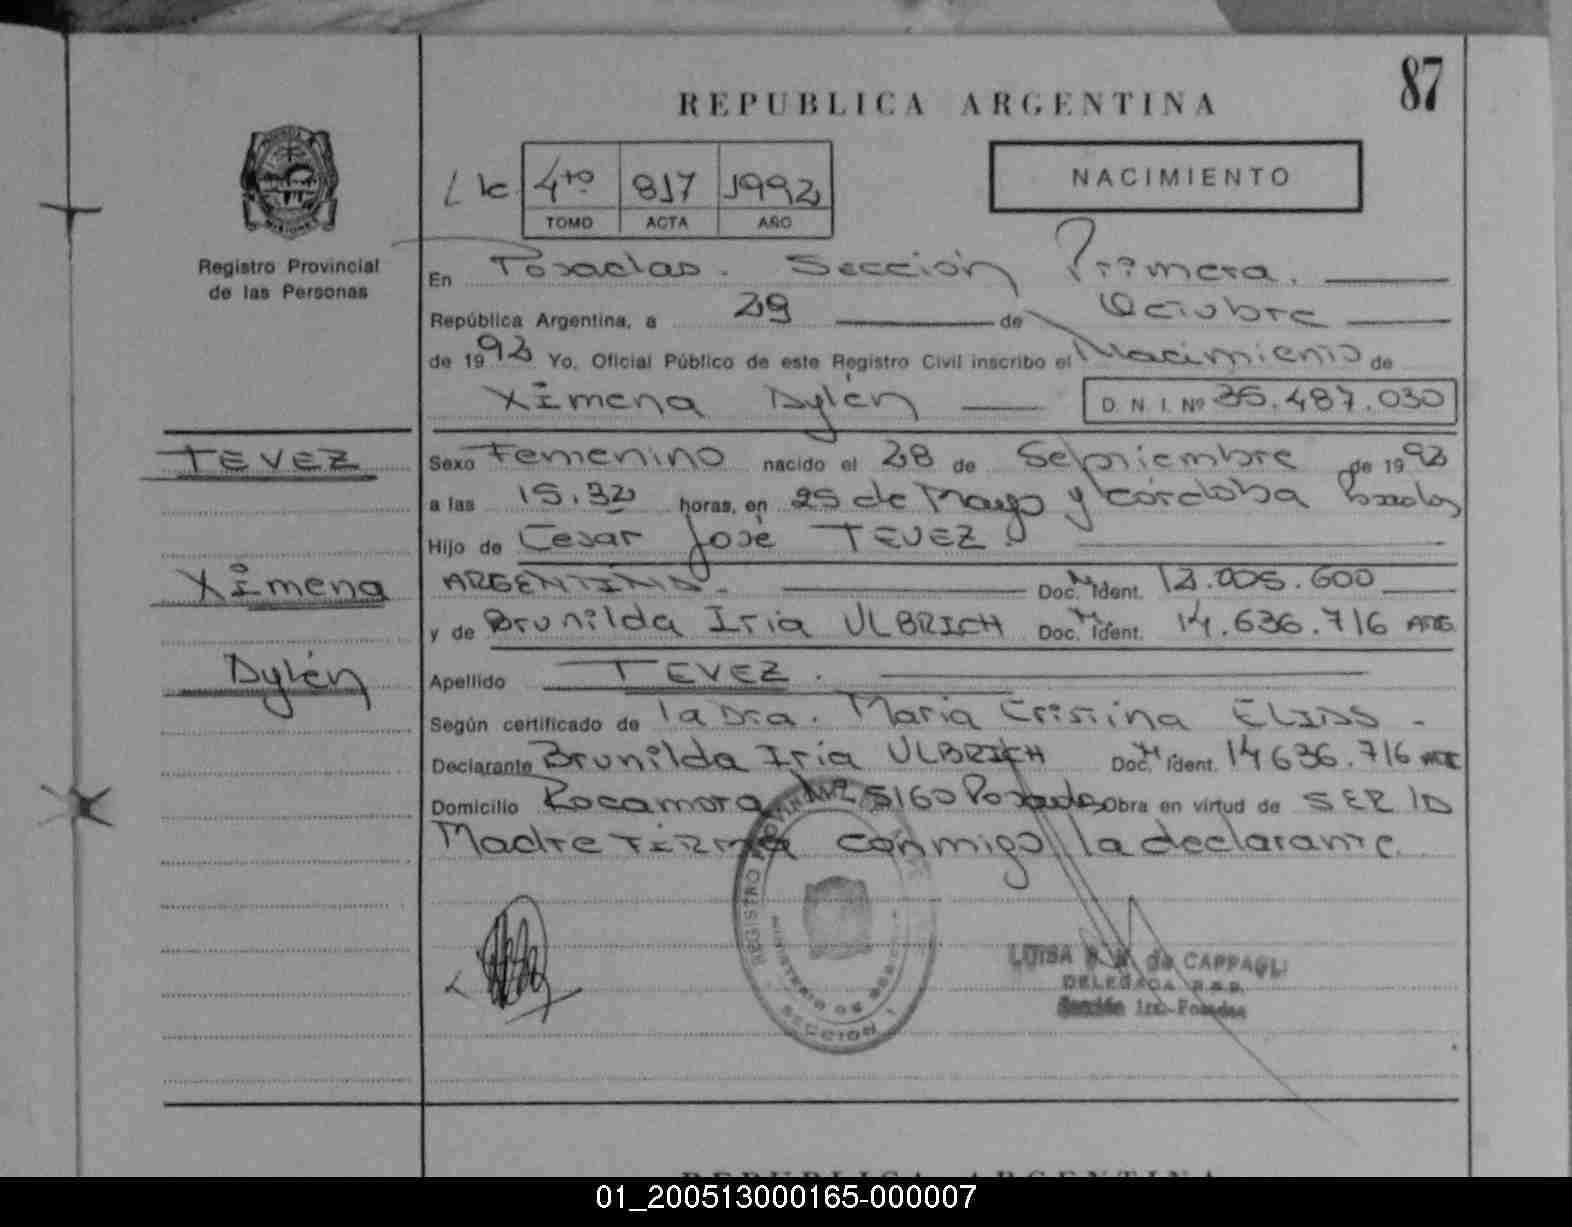 87
REPUBLICA ARGENTINA
4to 817 1992
TOMO ACTA AÑO
NACIMIENTO
Registro Provincial
de las Personas
En Posadas. Sección Primera.
República Argentina, a 29 de Octubre
de 1992 Yo, Oficial Público de este Registro Civil inscribo el Nacimiento de
Ximena Dylén D. N. I. Nº 35.487.030
TEVEZ
Sexo Femenino nacido el 28 de Septiembre de 1992
a las 15.32 horas, en 25 de Mayo y Córdoba Posadas
Hijo de Cesar José TEVEZ.
Ximena
ARGENTINO. Doc. Ident. 12.005.600
y de Brunilda Iria ULBRICH Doc. Ident. 14.636.716 ARG.
Dylén
Apellido TEVEZ.
Según certificado de la Dra. Maria Cristina ELIAS -
Declarante Brunilda Iria ULBRICH Doc. Ident. 14636.716
Domicilio Rocamora Nº 5160 Posadas Obra en virtud de SER LA
Madre FIRMA conmigo la declarante.
REGISTRO PROVINCIAL
MINISTERIO DE
SECCION 1
LUISA de CAPPAGLI
DELEGADA R.P.P.
Sección 1ra.-Posadas
REPUBLICA ARGENTINA
01_200513000165-000007